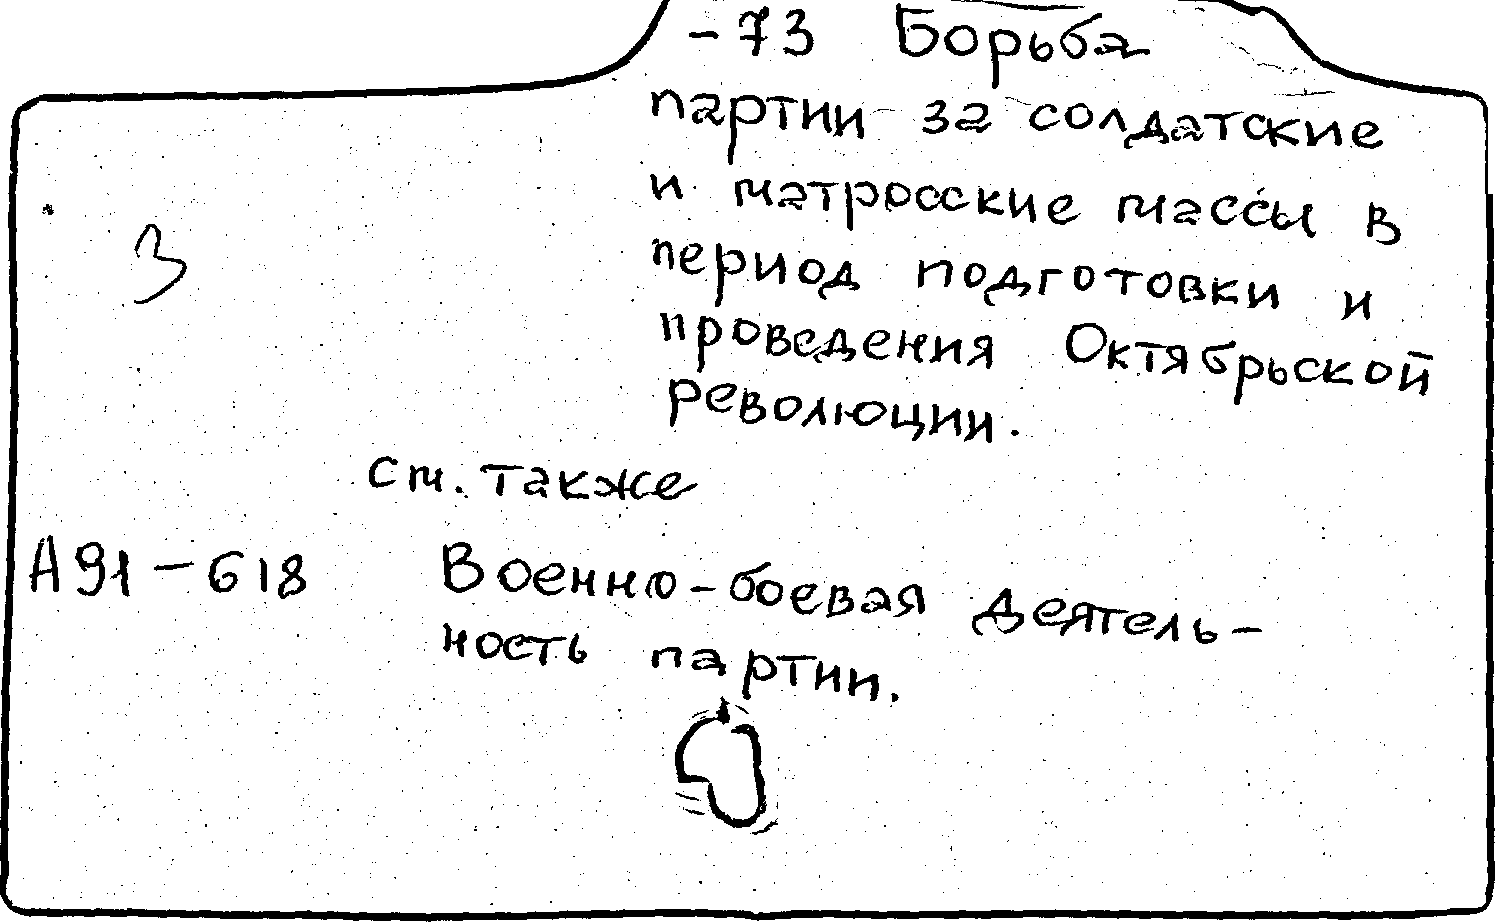 -73 Борьба
партии за солдатские
и матросские массы в
период подготовки и
проведения Октябрьской
революции.
3
см. также
А91-618 Военно-боевая деятель-
ность партии.